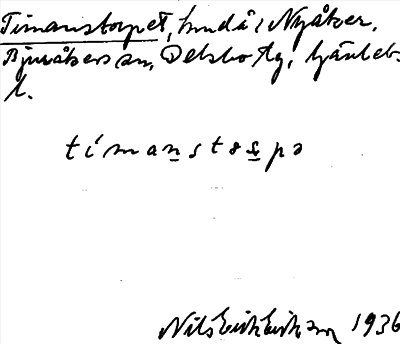 Timanstorpet, hmdå i Nyåker,
Bjuråkers sn, Delsbo tg, Gävleb.
l.
t i m a n s t ɷ s p ə
Nils Erik Eriksson 1936